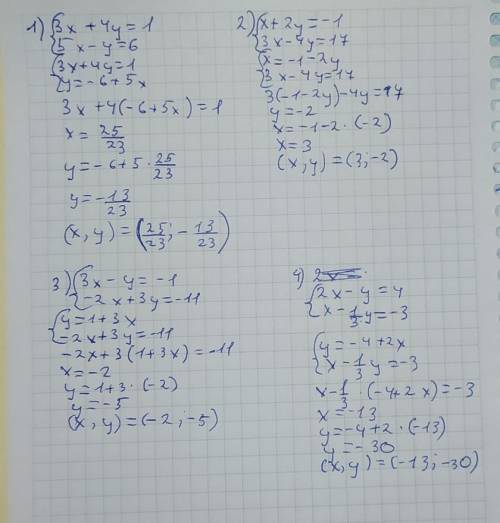 1) {3x + 4y = 1
5x - y = 6
{3x + 4y = 1
y = -6 + 5x
3x + 4(-6 + 5x) = 1
x = 25/23
y = -6 + 5 · 25/23
y = -13/23
(x, y) = (25/23; -13/23)
2) {x + 2y = -1
3x - 4y = 17
{x = -1 - 2y
3x - 4y = 17
3(-1 - 2y) - 4y = 17
y = -2
x = -1 - 2 · (-2)
x = 3
(x, y) = (3; -2)
3) {3x - y = -1
-2x + 3y = -11
{y = 1 + 3x
-2x + 3y = -11
-2x + 3(1 + 3x) = -11
x = -2
y = 1 + 3 · (-2)
y = -5
(x, y) = (-2; -5)
4)
{2x - y = 4
x - 1/3 y = -3
{y = -4 + 2x
x - 1/3 y = -3
x - 1/3 · (-4 + 2x) = -3
x = -13
y = -4 + 2 · (-13)
y = -30
(x, y) = (-13; -30)